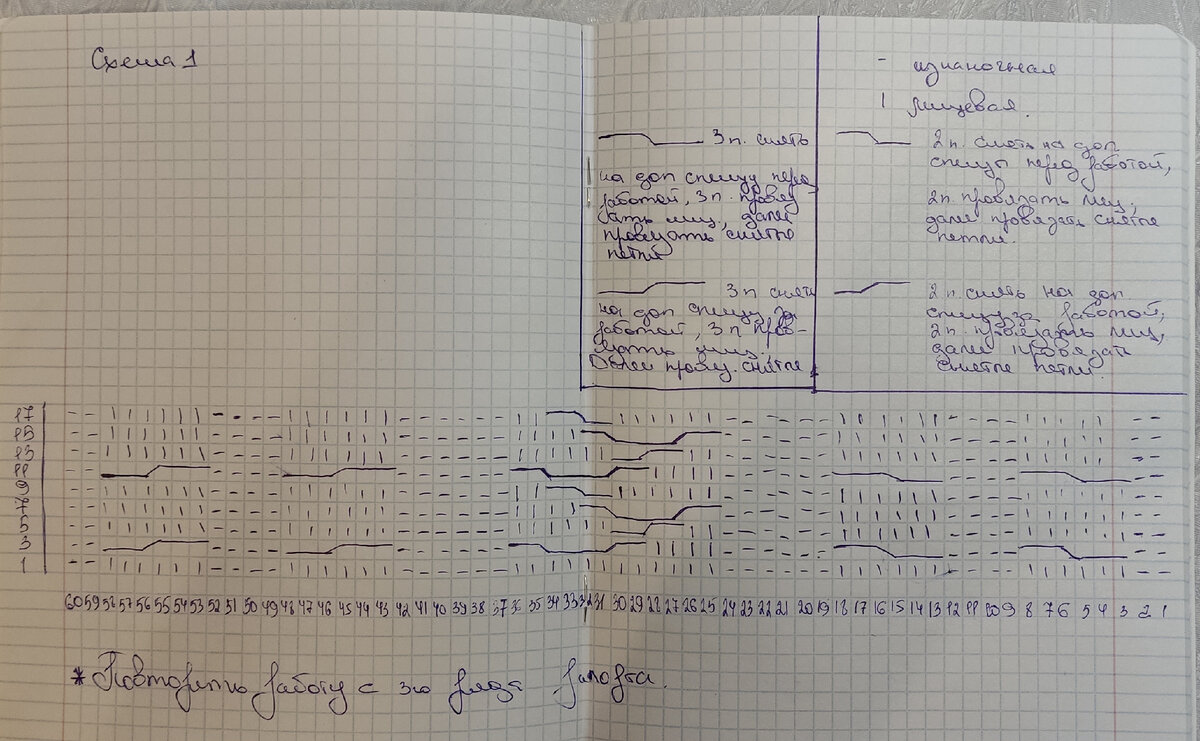 Схема 1
- изнаночная
| лицевая.
3 п. снять
на доп спицу пере
работой, 3 п. провяз
ать лиц., дале
провязать снятые
петли
2 п. снять на доп
спицы перед работой,
2 п. провязать лиц,
дале провязать снятые
петли.
3 п снять
на доп спицу за
работой, 3 п пров-
язать лиц.
Далее провяз. снятые
2 п. снять на доп
спицу за работой,
2 п. провязать лиц,
дале провязать
снятые петли.
17
15
13
11
9
7
5
3
1
60 59 58 57 56 55 54 53 52 51 50 49 48 47 46 45 44 43 42 41 40 39 38 37 36 35 34 33 32 31 30 29 28 27 26 25 24 23 22 21 20 19 18 17 16 15 14 13 12 11 10 9 8 7 6 5 4 3 2 1
* Повторять работу с 3го ряда рапорта.